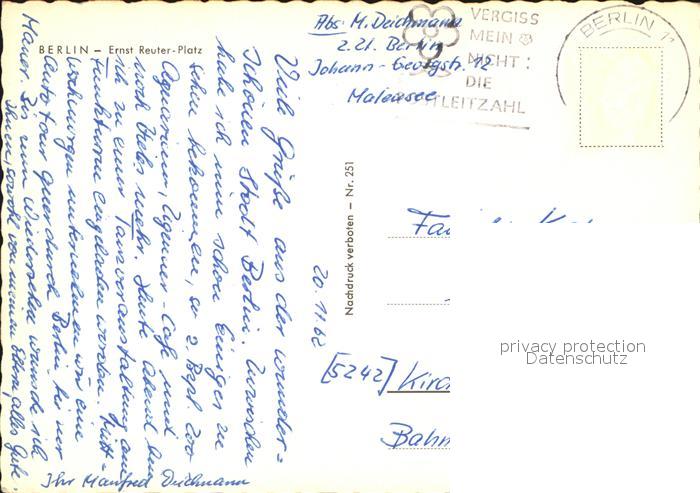 BERLIN – Ernst Reuter-Platz
Abs: M. Deichmann
z. Zt. Berlin
Johann-Georgstr. 12
Halensee
VERGISS
MEIN
NICHT:
DIE
POSTLEITZAHL
BERLIN 11
Viele Grüße aus der wunder=
schönen Stadt Berlin. Inzwischen
habe ich nun schon Einiges zu
sehen bekommen, so z. Bspl. Zoo
Aquarium, Zigeuner-Café und
noch vieles mehr. Heute Abend bin
ich zu einer Tanzveranstaltung am
Funkturm eingeladen worden. Mitt=
woch morgen unternehmen wir eine
Autotour quer durch Berlin bis zur
Mauer. Bis zum Wiedersehen wünsche ich
Ihnen, sowohl von meinen Eltern, alles Gute.
Ihr Manfred Deichmann
20.11.62
Nachdruck verboten – Nr. 251
[5242] Kirc
Bahn
privacy protection
Datenschutz